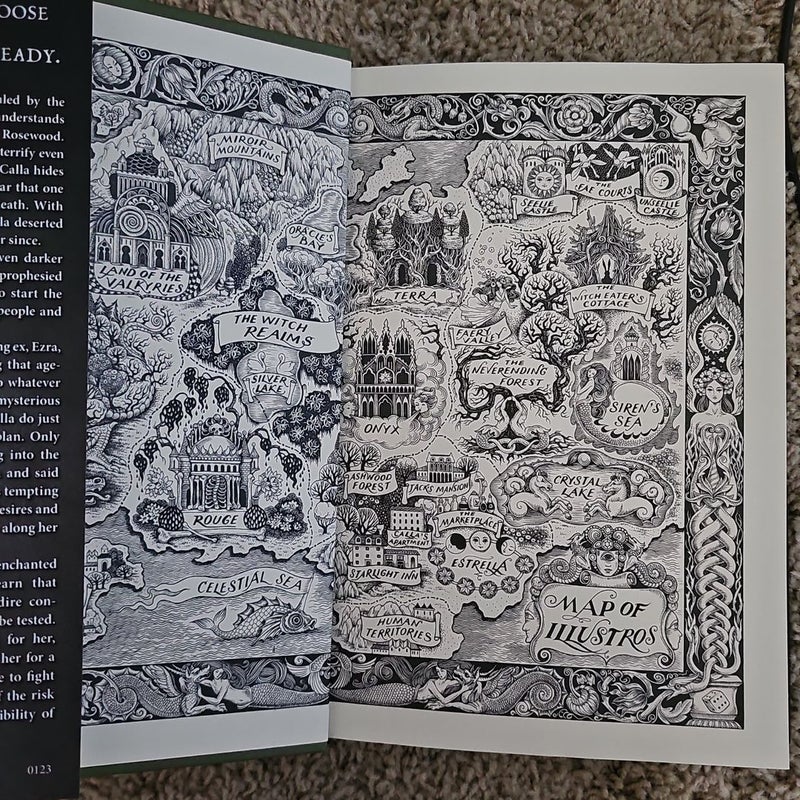 OOSE
EADY.
uled by the
understands
Rosewood.
terrify even
Calla hides
ar that one
eath. With
la deserted
r since.
ven darker
prophesied
o start the
people and
ng ex, Ezra,
g that age-
o whatever
mysterious
alla do just
plan. Only
g into the
and said
tempting
esires and
along her
enchanted
earn that
dire con-
be tested.
for her,
her for a
e to fight
f the risk
ibility of
0123
MIROIR
MOUNTAINS
ORACLE'S
BAY
LAND OF THE
VALKYRIES
THE WITCH
REALMS
SILVER
LAKE
ROUGE
CELESTIAL SEA
THE
LEAF COURTS
SEELIE
CASTLE
UNSEELIE
CASTLE
TERRA
THE
WITCH EATER'S
COTTAGE
FAERY
VALLEY
THE
NEVERENDING
FOREST
SIREN'S
SEA
ONYX
ASHWOOD
FOREST
JACK'S MANSION
CRYSTAL
LAKE
THE
MARKETPLACE
CALLA'S
APARTMENT
ESTRELLA
STARLIGHT INN
HUMAN
TERRITORIES
MAP OF
ILLUSTROS